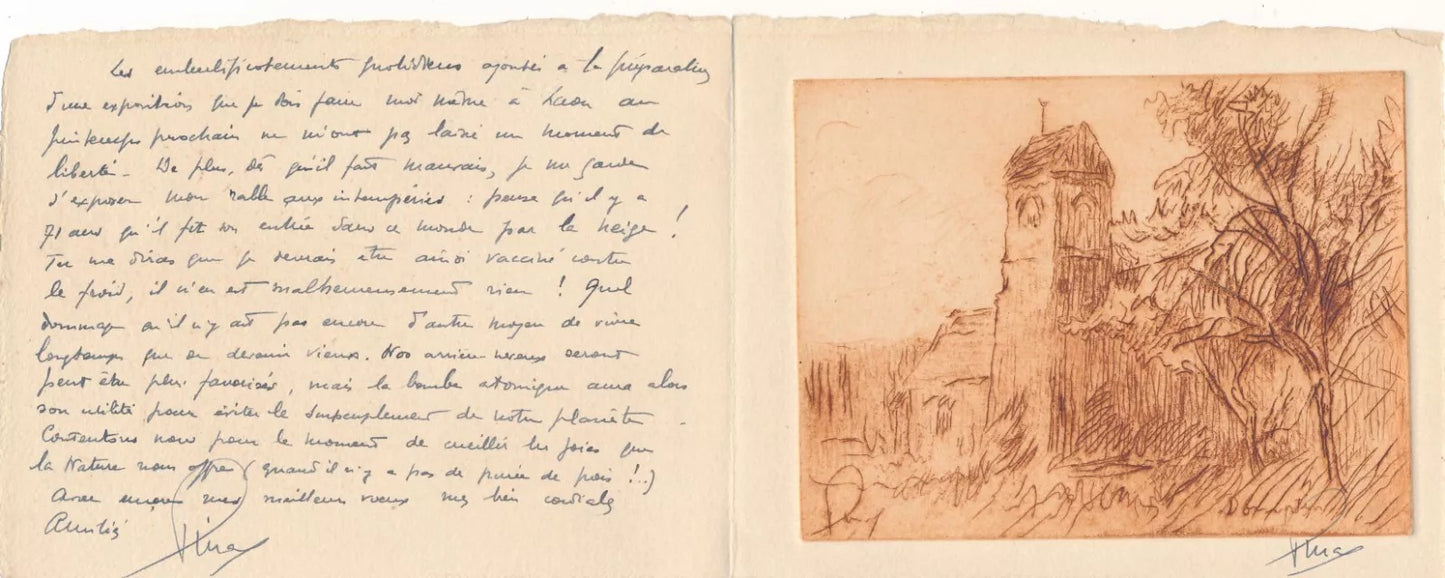 Les emberlificotements quotidiens ajoutés à la préparation
d'une exposition que je dois faire moi même à Laon au
printemps prochain ne m'ont pas laissé un moment de
liberté - De plus, dès qu'il fait mauvais, je me garde
d'exposer mon râble aux intempéries : pense qu'il y a
71 ans qu'il fit son entrée dans ce monde par la neige !
Tu me diras que je devrais être ainsi vacciné contre
le froid, il n'en est malheureusement rien ! Quel
dommage qu'il n'y ait pas encore d'autre moyen de vivre
longtemps que de devenir vieux. Nos arrière neveux seront
peut être plus favorisés, mais la bombe atomique aura alors
son utilité pour éviter le surpeuplement de notre planète.
Contentons nous pour le moment de cueillir les joies que
la Nature nous offre (quand il n'y a pas de purée de pois !..)
Avec encore mes meilleurs voeux mes bien cordiales
Amitiés